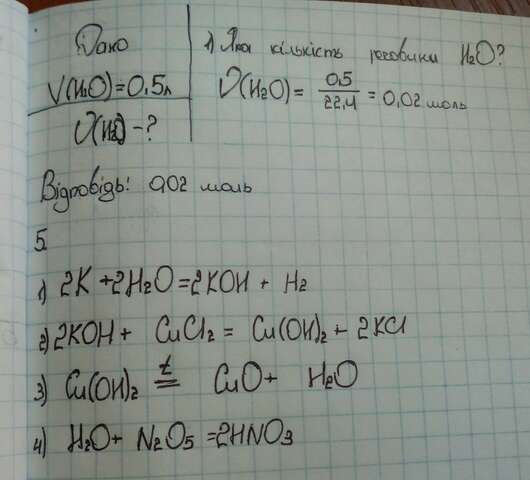 Дано
V(H₂O)=0,5л
ν(H₂O) -?
1) Яка кількість речовини H₂O?
ν(H₂O)= 0,5/22,4 = 0,02 моль
Відповідь: 0,02 моль
5.
1) 2K +2H₂O=2KOH + H₂
2) 2KOH + CuCl₂ = Cu(OH)₂ + 2KCl
3) Cu(OH)₂ t= CuO+ H₂O
4) H₂O+ N₂O₅ =2HNO₃